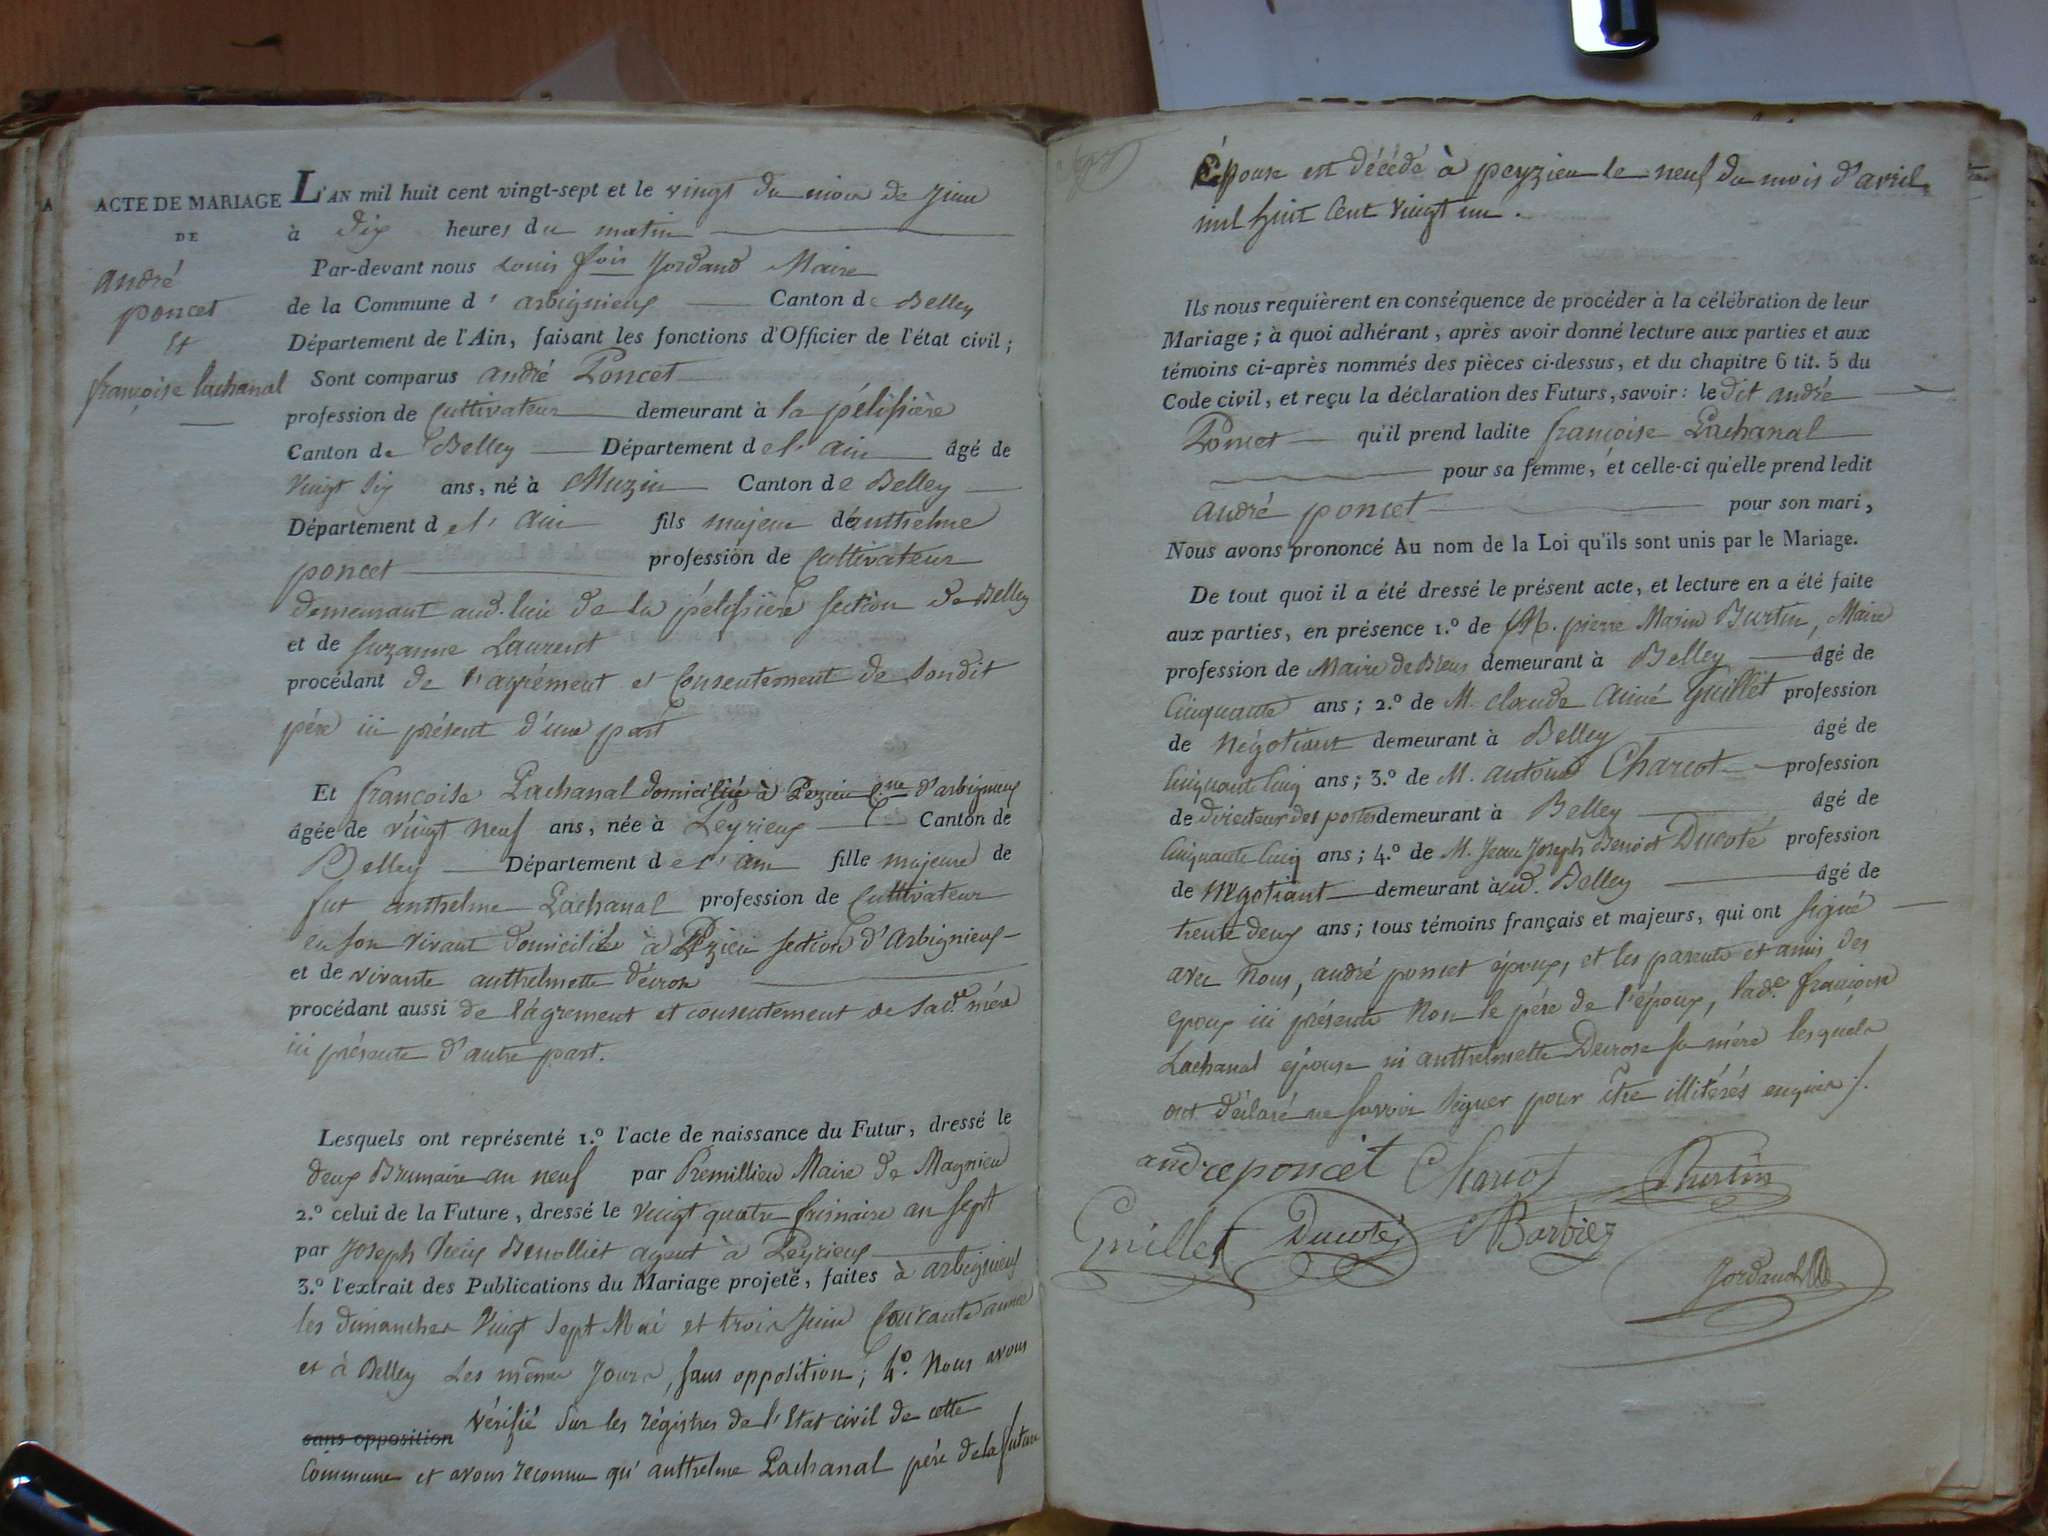 ACTE DE MARIAGE
DE
André
poncet
et
françoise lachanal
L'AN mil huit cent vingt-sept et le vingt du mois de juin
à dix heures du matin
Par-devant nous Louis fois Jordand Maire
de la Commune d' arbignieux Canton de Belley
Département de l'Ain, faisant les fonctions d'Officier de l'état civil;
Sont comparus andré Poncet
profession de Cultivateur demeurant à la pélissière
Canton de Belley Département de l' ain âgé de
Vingt six ans, né à Muzin Canton de Belley
Département de l' ain fils majeur de anthelme
poncet profession de Cultivateur
demeurant aud. lieu de la pélissière section de Belley
et de suzanne Laurent
procédant de l'agrément et Consentement de sondit
père ici présent d'une part
Et françoise Lachanal domiciliée à Pezieu C.ne d'arbignieux
âgée de vingt neuf ans, née à Peyrieux Canton de
Belley Département de l' ain fille majeure de
fut anthelme Lachanal profession de Cultivateur
en son vivant domicilié à Pezieu section d'Arbignieux
et de vivante anthelmette décrose
procédant aussi de l'agrement et consentement de sad.te mére
ici présente d'autre part.
Lesquels ont représenté 1.º l'acte de naissance du Futur, dressé le
deux Brumaire an neuf par Premillieu Maire de Magnieu
2.º celui de la Future, dressé le vingt quatre frimaire an sept
par Joseph Benolliet agent à Peyrieux
3.º l'extrait des Publications du Mariage projeté, faites à arbignieux
les dimanches vingt sept Mai et trois juin Courante année
et à Belley Les mêmes Jours, sans opposition; 4.º Nous avons
sans opposition vérifié sur les régistres de l'Etat civil de cette
Commune et avons reconnu qu'anthelme Lachanal père de la future
Épouse est décédé à peyzieu le neuf du mois d'avril
mil huit Cent vingt un.
Ils nous requièrent en conséquence de procéder à la célébration de leur
Mariage; à quoi adhérant, après avoir donné lecture aux parties et aux
témoins ci-après nommés des pièces ci-dessus, et du chapitre 6 tit. 5 du
Code civil, et reçu la déclaration des Futurs, savoir: le dit andré
Poncet qu'il prend ladite françoise Lachanal
pour sa femme, et celle-ci qu'elle prend ledit
andré poncet pour son mari,
Nous avons prononcé Au nom de la Loi qu'ils sont unis par le Mariage.
De tout quoi il a été dressé le présent acte, et lecture en a été faite
aux parties, en présence 1.º de M. pierre Marin Burtin, Maire
profession de Maire de Brens demeurant à Belley âgé de
Cinquante ans; 2.º de M. claude aimé Guillet profession
de négotiant demeurant à Belley âgé de
Cinquante Cinq ans; 3.º de M. antoine Charcot profession
de directeur des postes demeurant à Belley âgé de
Cinquante Cinq ans; 4.º de M. Jean Joseph Benoit Ducoté profession
de Négotiant demeurant à ud. Belley âgé de
trente deux ans; tous témoins français et majeurs, qui ont signé
avec nous, andré poncet époux, et les parents et amis des
epoux ici présents Non le père de l'époux, lad.e françoise
Lachanal épouse ni anthelmette Decrose sa mére lesquels
ont déclaré ne savoir signer pour être illitérés enquis ./.
andre poncet Charcot Burtin
Guillet Ducoté Barbier
Jordand